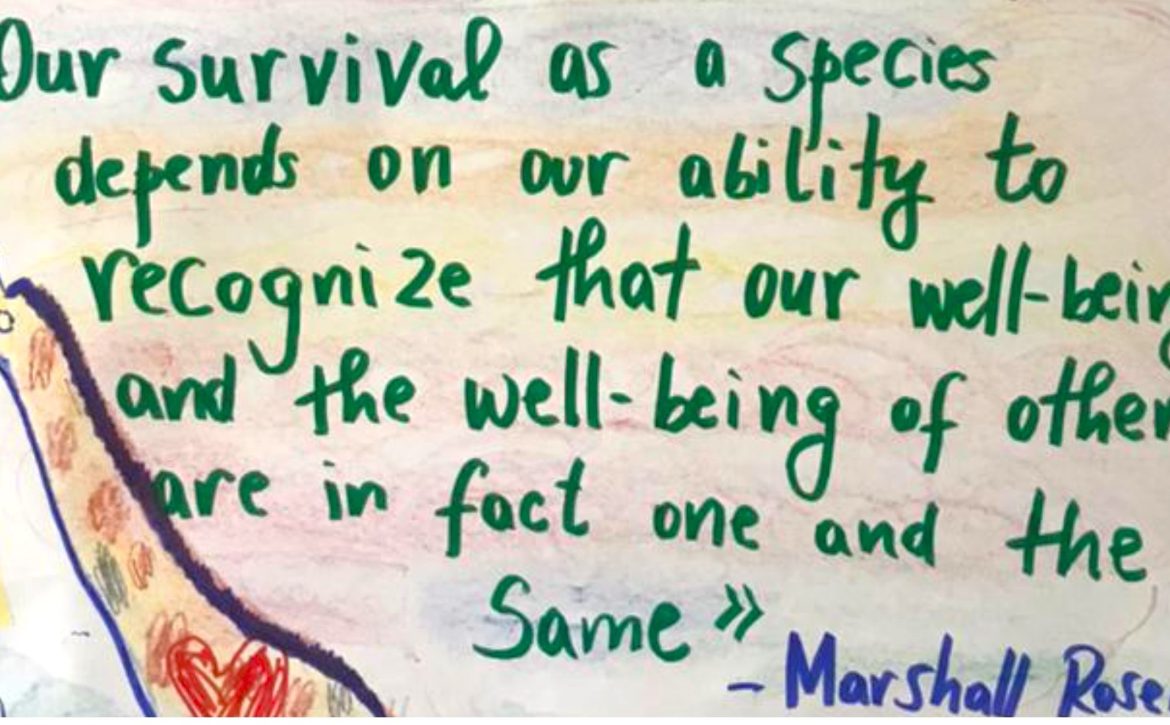 Our survival as a species
depends on our ability to
recognize that our well-bein
and the well-being of other
are in fact one and the
Same »
- Marshall Rose